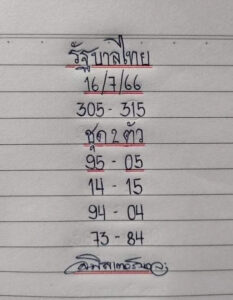 รัฐบาลไทย
16/7/66
305 - 315
ชุด 2 ตัว
95 - 05
14 - 15
94 - 04
73 - 84